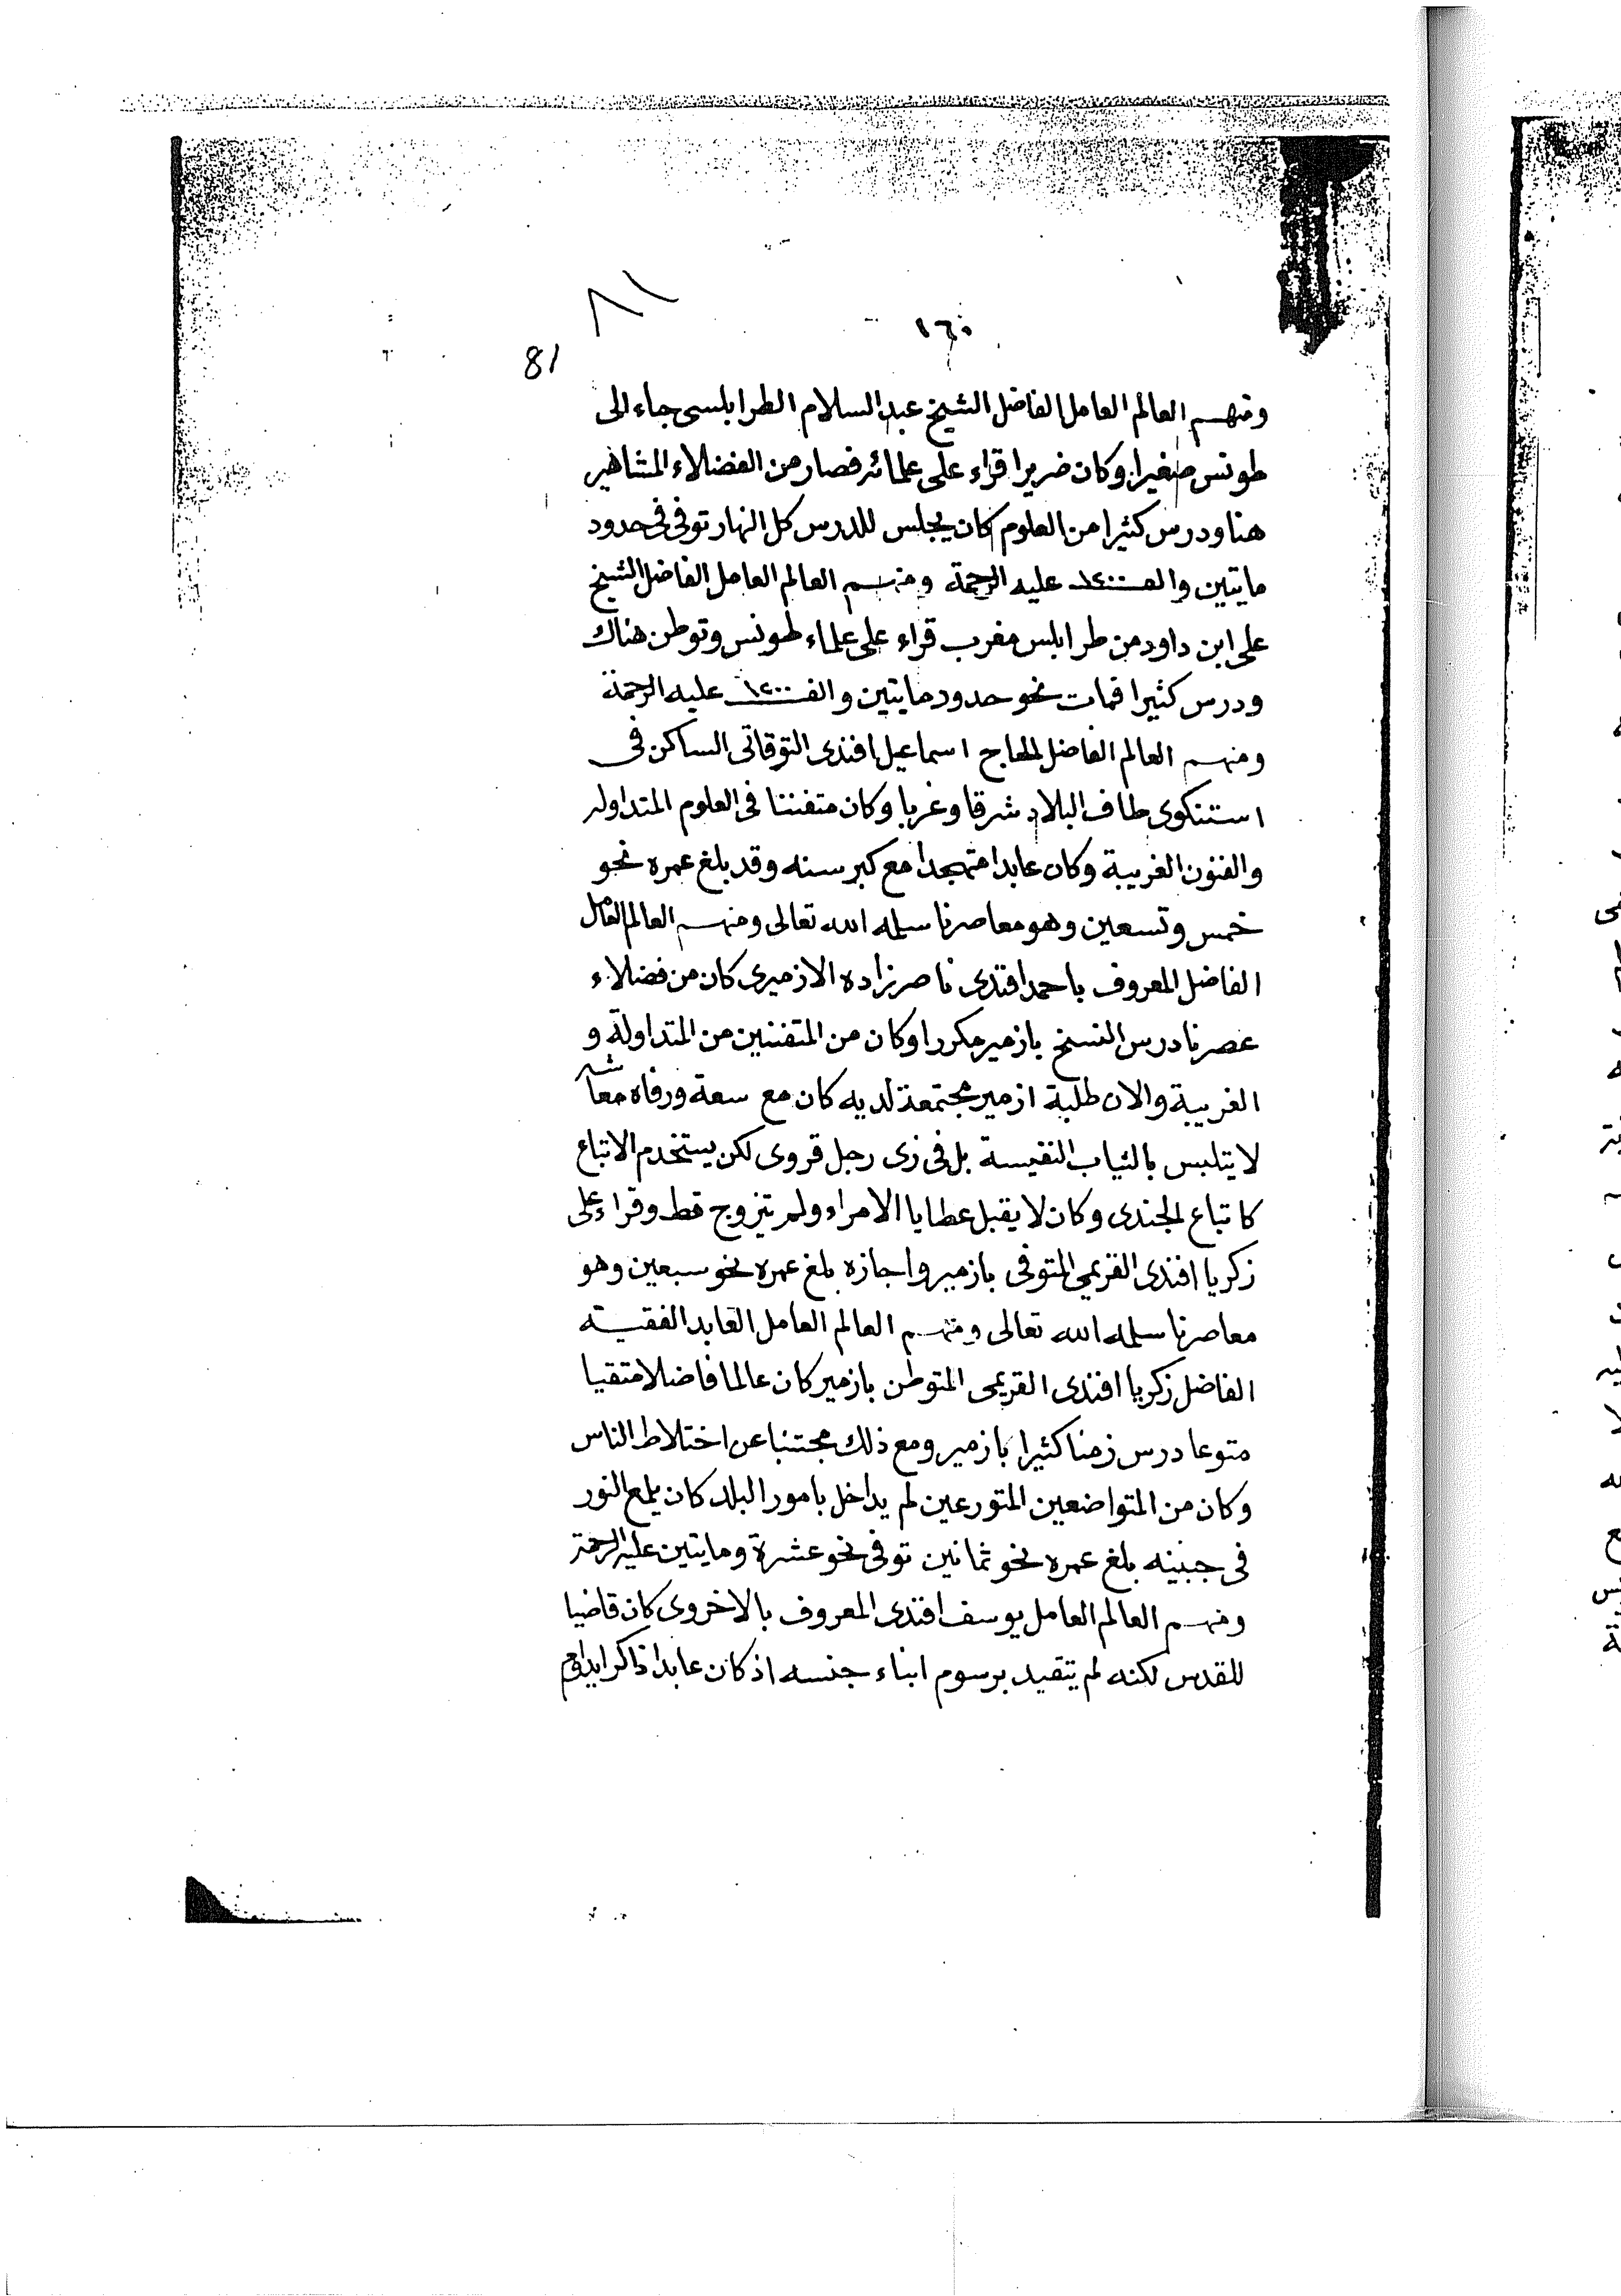 ٨١
١٦٠
81
ومنهم العالم العامل الفاضل الشيخ عبد السلام الطرابلسى جاء الى
طونس صغيرا وكان ضريرا قراء على علمائه فصار من الفضلاء المشاهير
هنا ودرس كثيرا من العلوم كان يجلس للدرس كل النهار توفى فى حدود
مايتين والف ١٢٠٠ عليه الرحمة ومنهم العالم العامل الفاضل الشيخ
على ابن داود من طرابلس مغرب قراء على علماء طونس وتوطن هناك
ودرس كثيرا فمات نحو حدود مايتين والف ١٢٠٠ عليه الرحمة
ومنهم العالم الفاضل الحاج اسماعيل افندى التوقاتى الساكن فى
استنكوى طاف البلاد شرقا وغربا وكان متفننا فى العلوم المتداوله
والفنون الغريبة وكان عابدا متهجدا مع كبر سنه وقد بلغ عمره نحو
خمس وتسعين وهو معاصرنا سلمه الله تعالى ومنهم العالم العامل
الفاضل المعروف باحمد افندى ناصر زاده الازميرى كان من فضلاء
عصرنا درس النسخ بازمير مكررا وكان من المتفننين من المتداولة و
الغريبة والان طلبة ازمير مجتمعة لديه كان مع سعة ورفاه معاشه
لا يتلبس بالثياب النفيسة بل فى زى رجل قروى لكن يستخدم الاتباع
كاتباع الجندى وكان لا يقبل عطايا الامراء ولم تيزوج قط وقراء على
زكريا افندى القريمى المتوفى بازمير واجازه بلغ عمره نحو سبعين وهو
معاصرنا سلمه الله تعالى ومنهم العالم العامل العابد الفقيه
الفاضل زكريا افندى القريمى المتوطن بازمير كان عالما فاضلا متقيا
متوعا درس زمنا كثيرا بازمير ومع ذلك مجتنبا عن اختلاط الناس
وكان من المتواضعين المتورعين لم يداخل بامور البلد كان يلمع النور
فى جبينه بلغ عمره نحو ثمانين توفى نحو عشرة ومايتين عليه الرحمة
ومنهم العالم العامل يوسف افندى المعروف بالاخروى كان قاضيا
للقدس لكنه لم يتقيد برسوم ابناء جنسه اذ كان عابدا ذاكرا